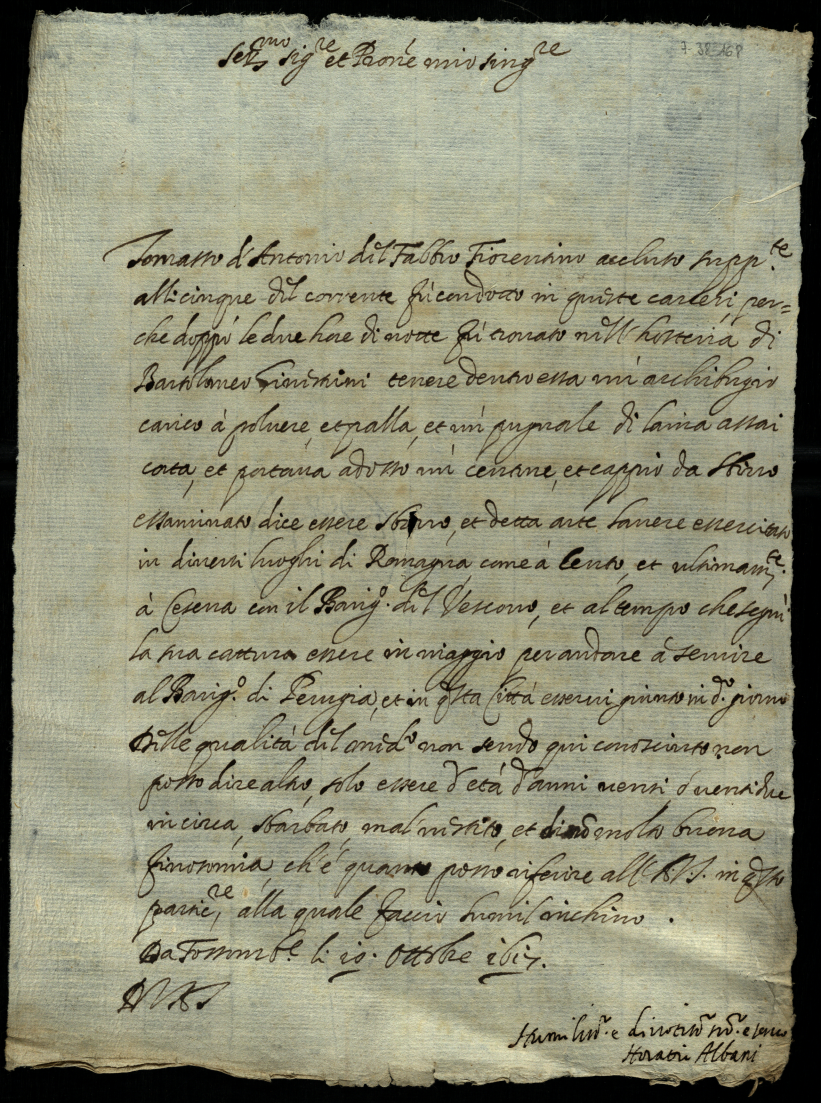 7-38-168
Ser.mo Sig.re et Prone mio sing.re
Tomasso d'Antonio del Fabbro Fiorentino accluso supp.te
alli cinque del corrente fù condotto in queste carceri, per=
che doppò le due hore di notte fù trovato nell'hosteria di
Bartolomeo tenere dentro essa un archibugio
carico à polvere, et palla, et un pugnale di lama assai
corta, et portava adosso un centine, et cappio da sbirro
essaminato dice essere sbirro, et detta arte havere essercitato
in diversi luoghi di Romagna come à Cento, et ultimam.te
à Cesena con il Barig.o del Vescovo, et al tempo che seguì
la sua cattura essere in viaggio per andare à servire
al Barig.o di Perugia, et in q.sta Città esservi giunto in d.o giorno
Delle qualità del med.o non sendo qui conosciuto non
posso dire altro, solo essere d'età d'anni venti ò ventidue
in circa, sbarbato mal vestito, et di molto buona
finosomia, ch'è quanto posso riferire all'A.V.S. in q.sto
partic.re, alla quale faccio humil inchino.
Da Fossomb.e li 10. Ottobre 1617.
D V A S
Humiliss.o e divotiss.o
Horatio Albani